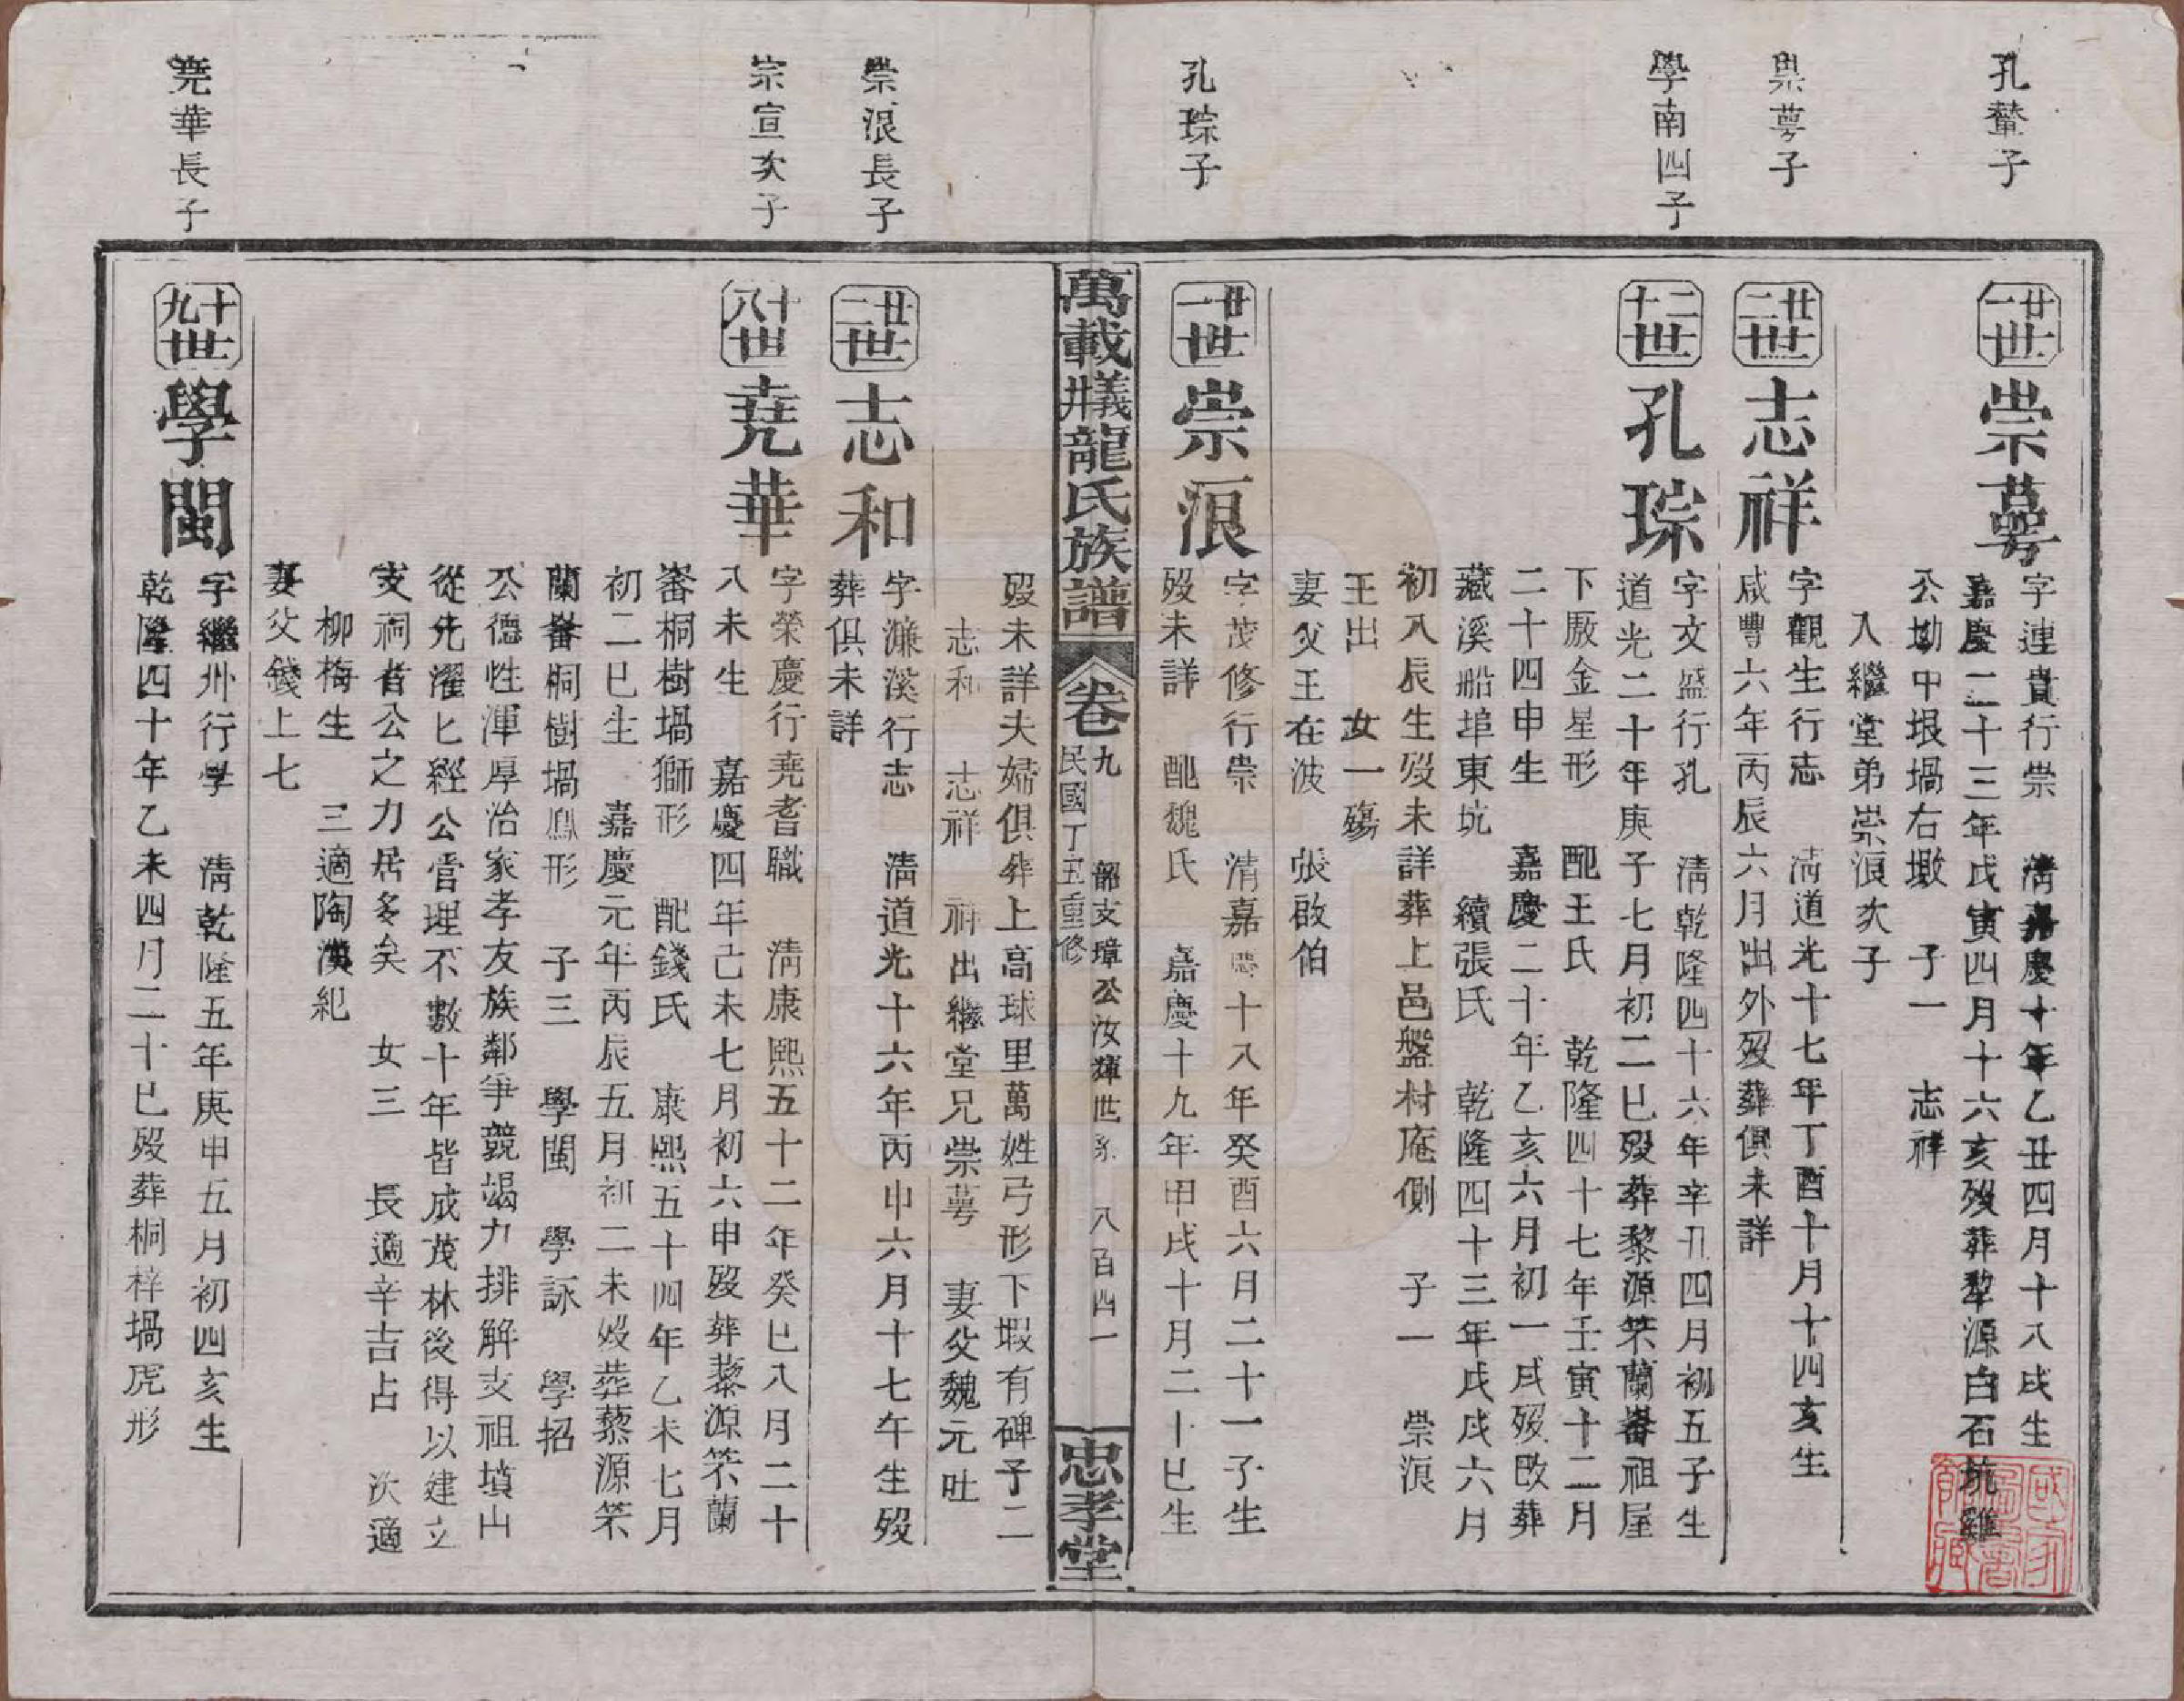 孔鰲子
廿一世
崇蕚
字連貴行崇　淸嘉慶十年乙丑四月十八戌生
嘉慶二十三年戊寅四月十六亥歿葬犂源白石坑雞
公坳中垠堝右墩　子一　志祥
入繼堂弟崇浪次子
崇蕚子
廿二世
志祥
字觀生行志　淸道光十七年丁酉十月十四亥生
咸豐六年丙辰六月出外歿葬俱未詳
學南四子
二十世
孔琮
字文盛行孔　淸乾隆四十六年辛丑四月初五子生
道光二十年庚子七月初二巳歿葬黎源笨蘭畬祖屋
下厫金星形　配王氏　乾隆四十七年壬寅十二月
二十四申生　嘉慶二十年乙亥六月初一戌歿改葬
藏溪船埠東坑　續張氏　乾隆四十三年戊戌六月
初八辰生歿未詳葬上邑盤村庵側　子一　崇浪
王出　女一殤
妻父王在波　張啟伯
孔琮子
廿一世
崇浪
字茂修行崇　清嘉慶十八年癸酉六月二十一子生
歿未詳　配魏氏　嘉慶十九年甲戌十月二十巳生
萬載井義龍氏族譜
卷九
民國丁丑重修
韶支璋公汝輝世系　八百四一
忠孝堂
歿未詳夫婦俱葬上高球里萬姓弓形下塅有碑子二
志和　志祥　祥出繼堂兄崇蕚　妻父魏元吐
崇浪長子
廿二世
志和
字濂溪行志　淸道光十六年丙申六月十七午生歿
葬俱未詳
宗宣次子
十八世
堯華
字榮慶行堯耆職　淸康熙五十二年癸巳八月二十
八未生　嘉慶四年己未七月初六申歿葬藜源笨蘭
畬桐樹堝獅形　配錢氏　康熙五十四年乙未七月
初二巳生　嘉慶元年丙辰五月初二未歿葬藜源笨
蘭畬桐樹堝鳳形　子三　學閩　學詠　學招
公德性渾厚治家孝友族鄰爭競竭力排解支祖墳山
從先濯匕經公管理不數十年皆成茂林後得以建立
支祠者公之力居多矣　女三　長適辛吉占　次適
柳梅生　三適陶漢紀
妻父錢上七
堯華長子
十九世
學閩
字繼州行學　淸乾隆五年庚申五月初四亥生
乾隆四十年乙未四月二十巳歿葬桐梓堝虎形
國家圖書館藏